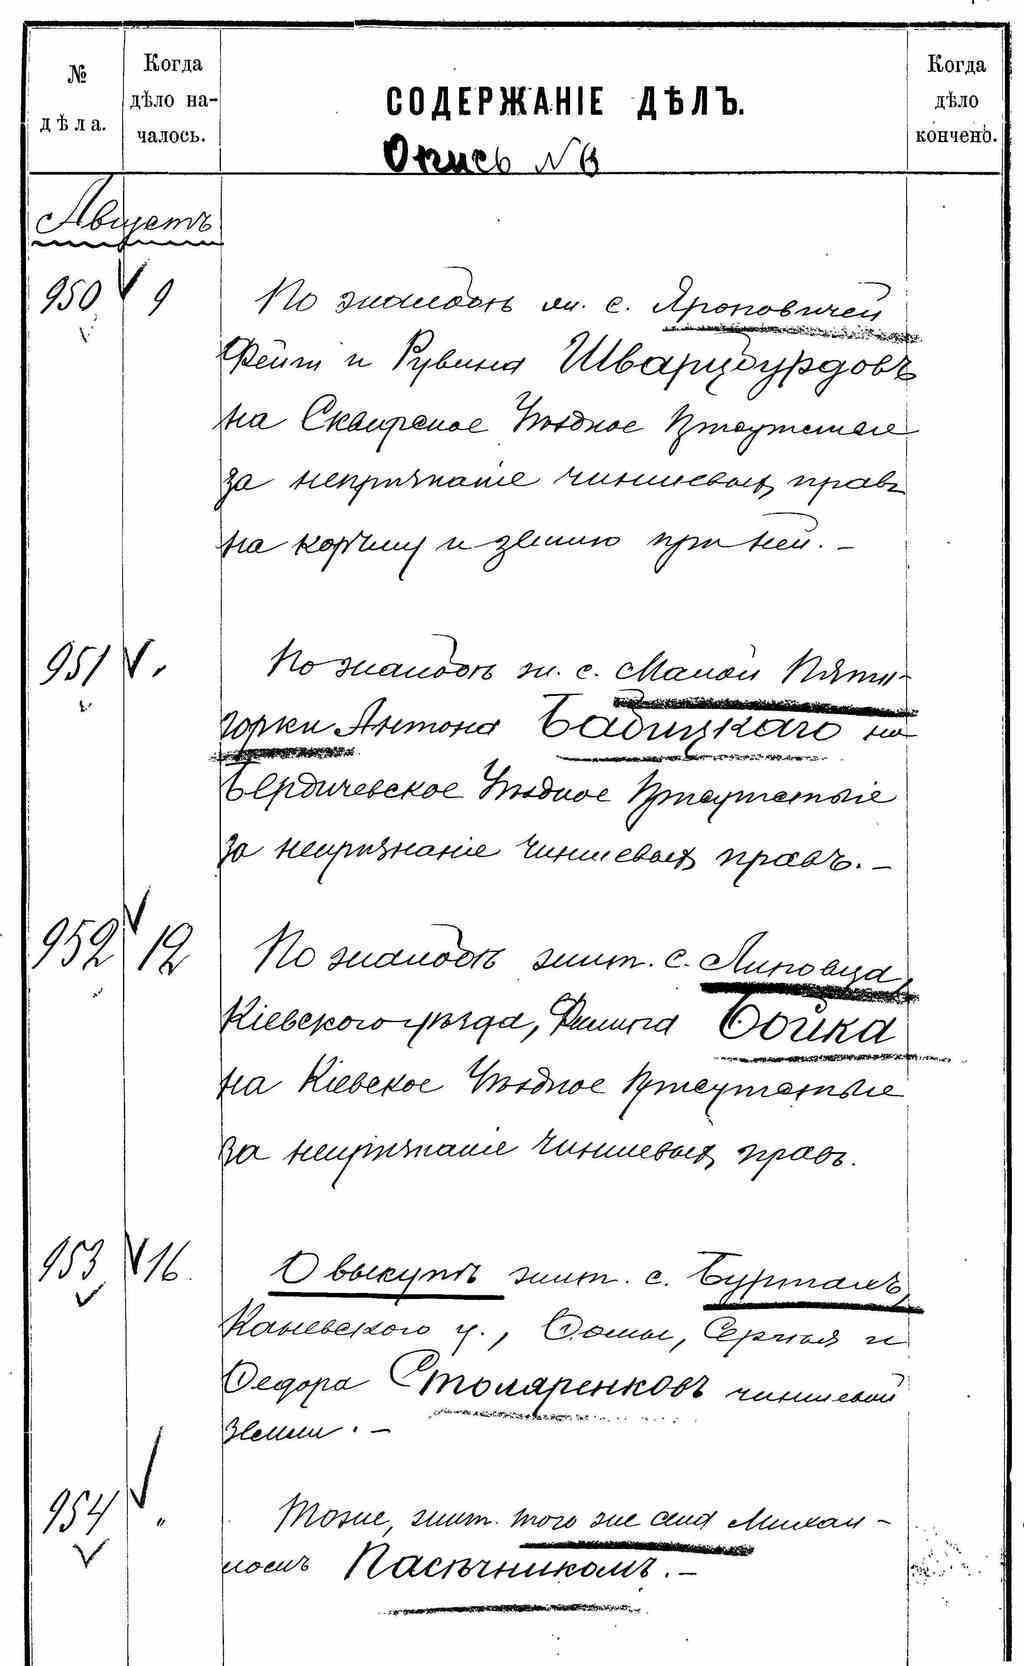 № дѣла.
Когда дѣло на-
чалось.
СОДЕРЖАНІЕ ДѢЛЪ.
Когда дѣло кончено.
Опись №
Августъ
950 9 По жалобѣ с. Яроповичей
Фейги и Рувина Шварцбурдовъ
на Сквирское Уѣздное Присутствіе
за непризнаніе чиншевыхъ правъ
на корчму и землю при ней. –
951 „ По жалобѣ ж. с. Малой Пяти-
горки Антона Бабицкаго на
Бердичевское Уѣздное Присутствіе
за непризнаніе чиншевыхъ правъ. –
952 12 По жалобѣ жит. с. Липовца,
Кіевского уѣзда, Филипа Бойка
на Кіевское Уѣздное Присутствіе
за непризнаніе чиншевыхъ правъ.
953 16 О выкупѣ жит. с. Бурты,
Каневского у., Ѳомы, Сергѣя и
Ѳедора Столяренковъ чиншевой
земли. –
954 „ Тоже, жит. того же села Михаи-
ломъ Пасѣчникомъ. –